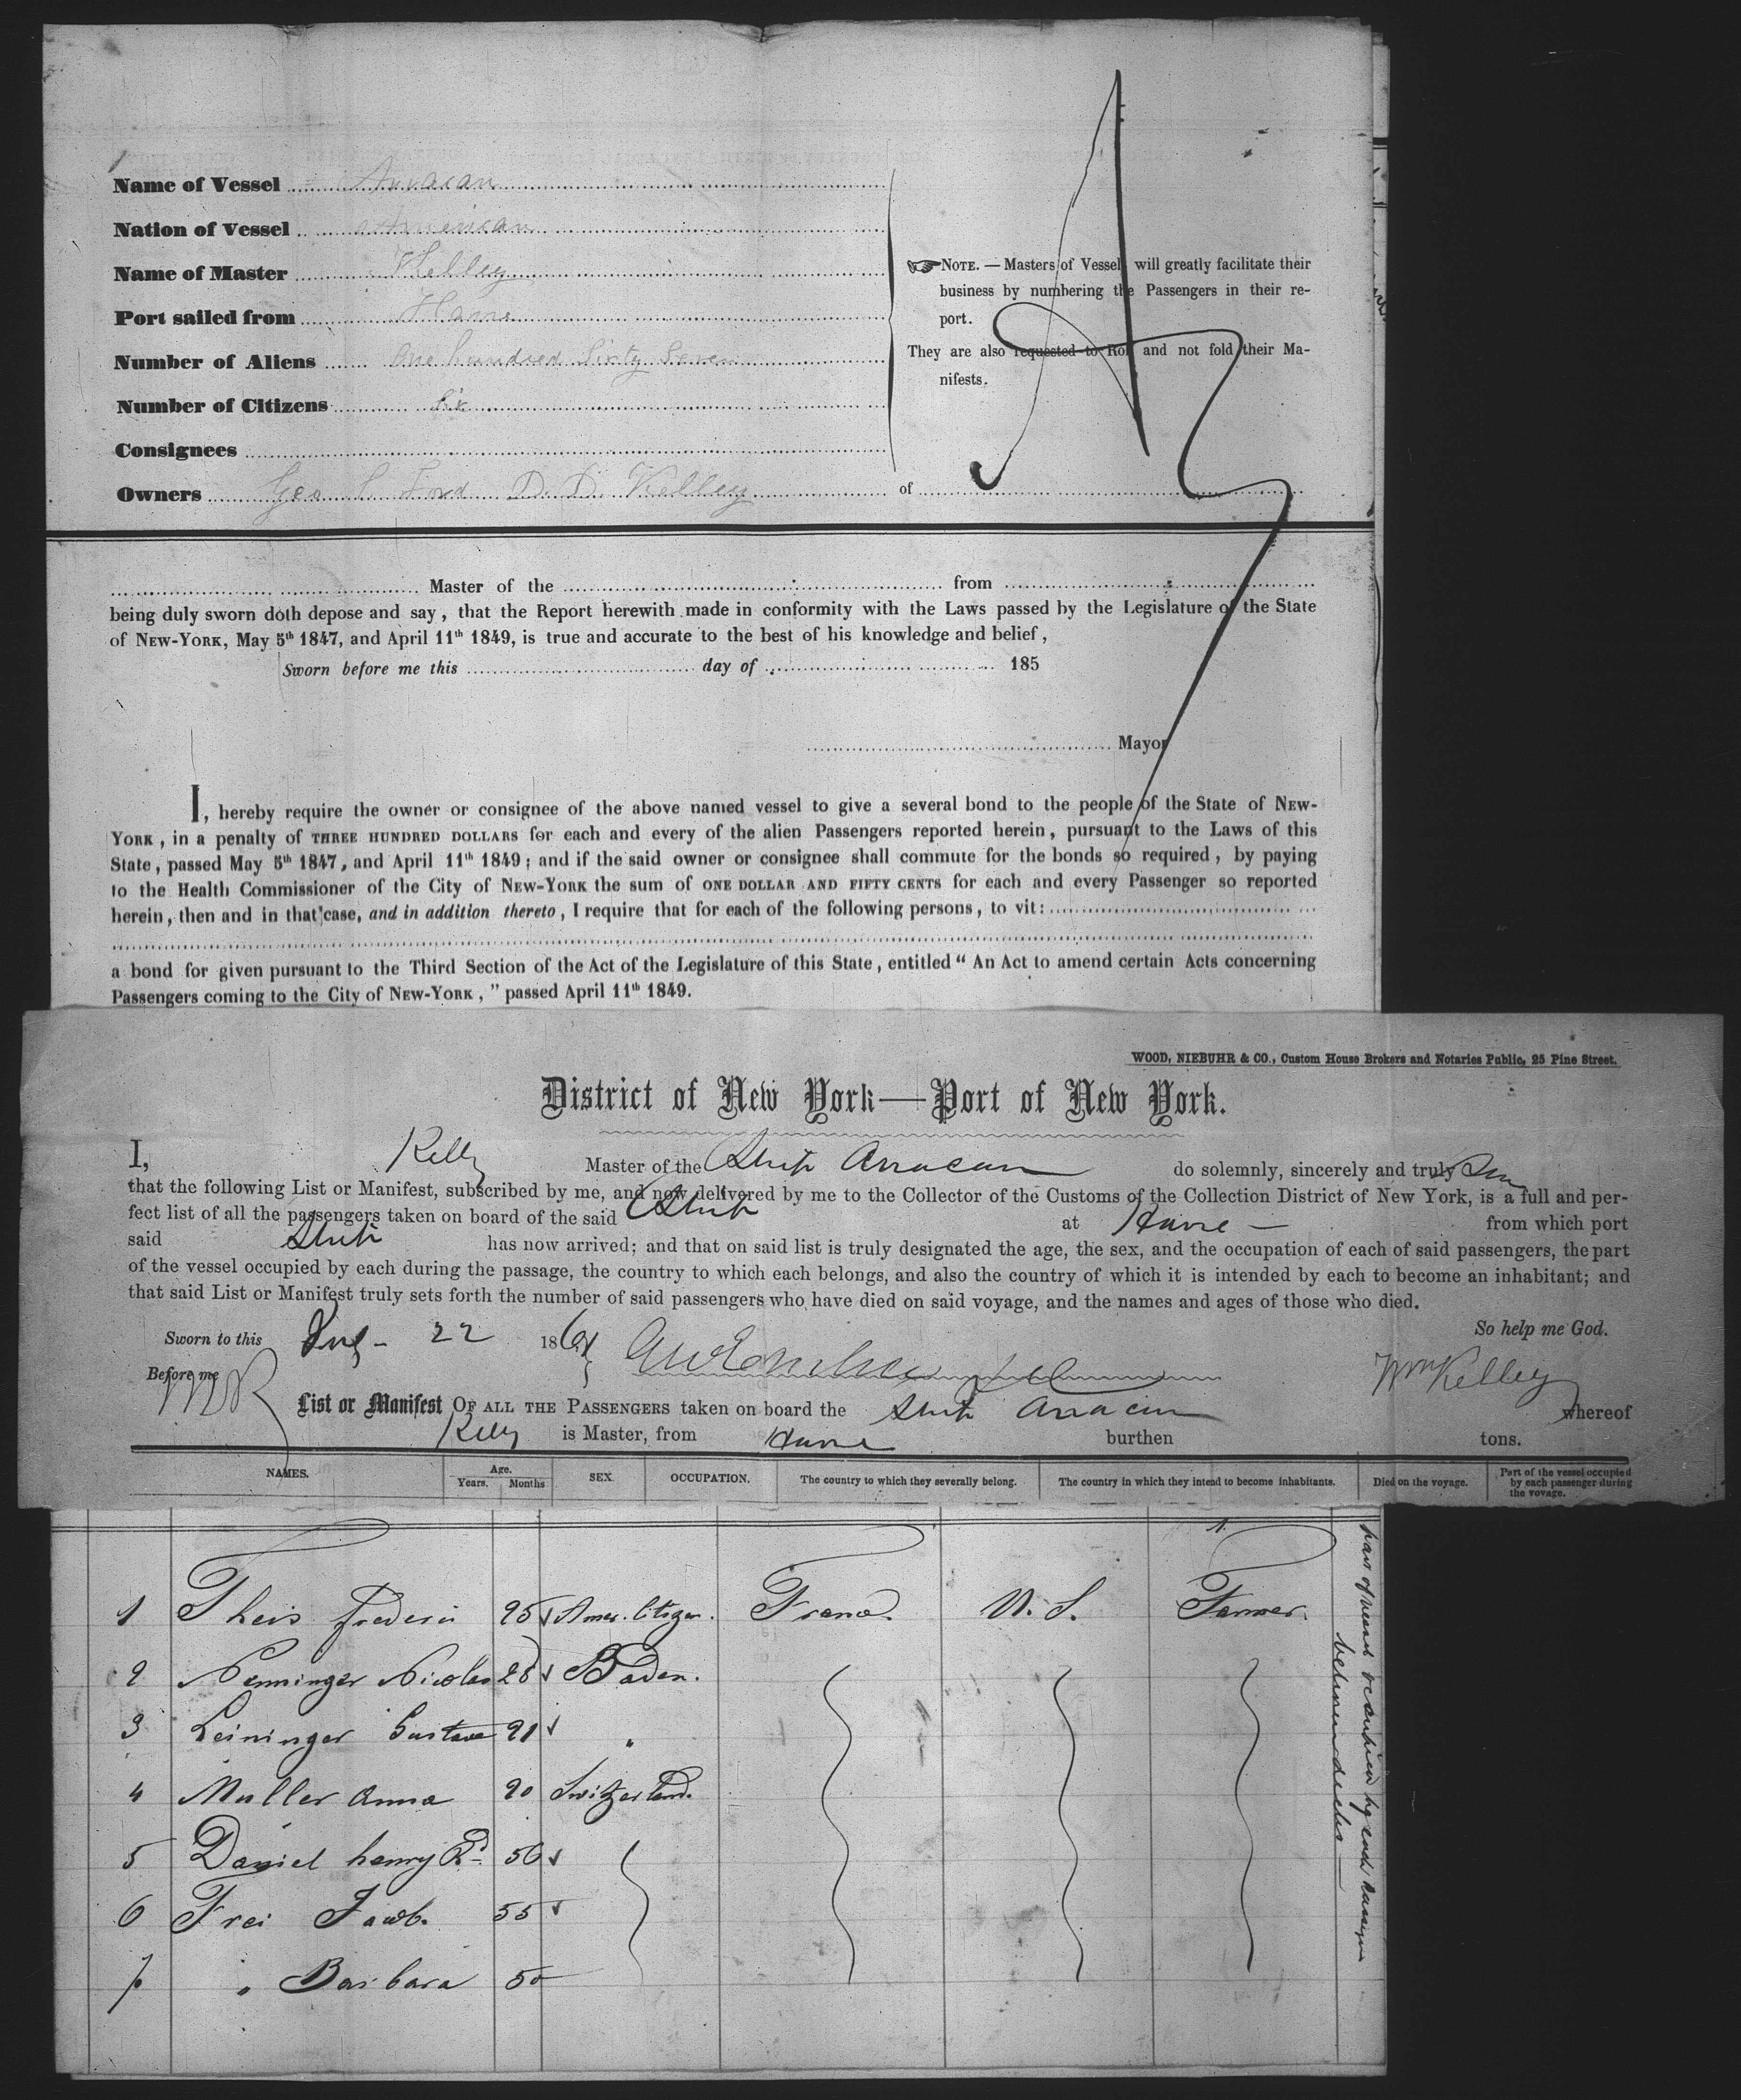 Name of Vessel Arracan
Nation of Vessel American
Name of Master Kelley
Port sailed from Havre
Number of Aliens One hundred Sixty Seven
Number of Citizens Six
Consignees
Owners Geo S. Ford D. D. Kelley of
NOTE. — Masters of Vessels will greatly facilitate their
business by numbering the Passengers in their re-
port.
They are also requested to Roll and not fold their Ma-
nifests.
Master of the from
being duly sworn doth depose and say, that the Report herewith made in conformity with the Laws passed by the Legislature of the State
of NEW-YORK, May 5th 1847, and April 11th 1849, is true and accurate to the best of his knowledge and belief,
Sworn before me this day of 185
Mayor
I, hereby require the owner or consignee of the above named vessel to give a several bond to the people of the State of NEW-
YORK, in a penalty of THREE HUNDRED DOLLARS for each and every of the alien Passengers reported herein, pursuant to the Laws of this
State, passed May 5th 1847, and April 11th 1849; and if the said owner or consignee shall commute for the bonds so required, by paying
to the Health Commissioner of the City of NEW-YORK the sum of ONE DOLLAR AND FIFTY CENTS for each and every Passenger so reported
herein, then and in that case, and in addition thereto, I require that for each of the following persons, to vit:
a bond for given pursuant to the Third Section of the Act of the Legislature of this State, entitled “ An Act to amend certain Acts concerning
Passengers coming to the City of NEW-YORK, ” passed April 11th 1849.
WOOD, NIEBUHR & CO., Custom House Brokers and Notaries Public, 25 Pine Street.
District of New York—Port of New York.
I, Kelly Master of the Ship Arracan do solemnly, sincerely and truly
that the following List or Manifest, subscribed by me, and now delivered by me to the Collector of the Customs of the Collection District of New York, is a full and per-
fect list of all the passengers taken on board of the said Ship at Havre — from which port
said Ship has now arrived; and that on said list is truly designated the age, the sex, and the occupation of each of said passengers, the part
of the vessel occupied by each during the passage, the country to which each belongs, and also the country of which it is intended by each to become an inhabitant; and
that said List or Manifest truly sets forth the number of said passengers who have died on said voyage, and the names and ages of those who died.
Sworn to this Aug - 22 1861 So help me God.
Before me Wm Kelley
List or Manifest OF ALL THE PASSENGERS taken on board the Ship Arracan whereof
Kelly is Master, from Havre burthen tons.
NAMES. Age. Years. Months SEX. OCCUPATION. The country to which they severally belong. The country in which they intend to become inhabitants. Died on the voyage. Part of the vessel occupied by each passenger during the voyage.
1 Theis Frederic 25 Amer. Citizen. France. U. S. Farmer.
2 Nenninger Nicolas 28 Baden.
3 Leininger Gustave 21 "
4 Muller Anna 20 Switzerland.
5 Daniel henry Rd 56
6 Frei Jacob. 55
7 " Barbara 50
part of vessel occupied by each passenger
between decks —